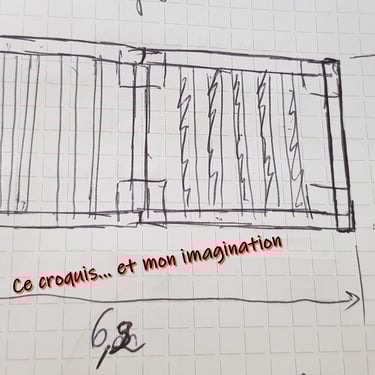 Ce croquis... et mon imagination